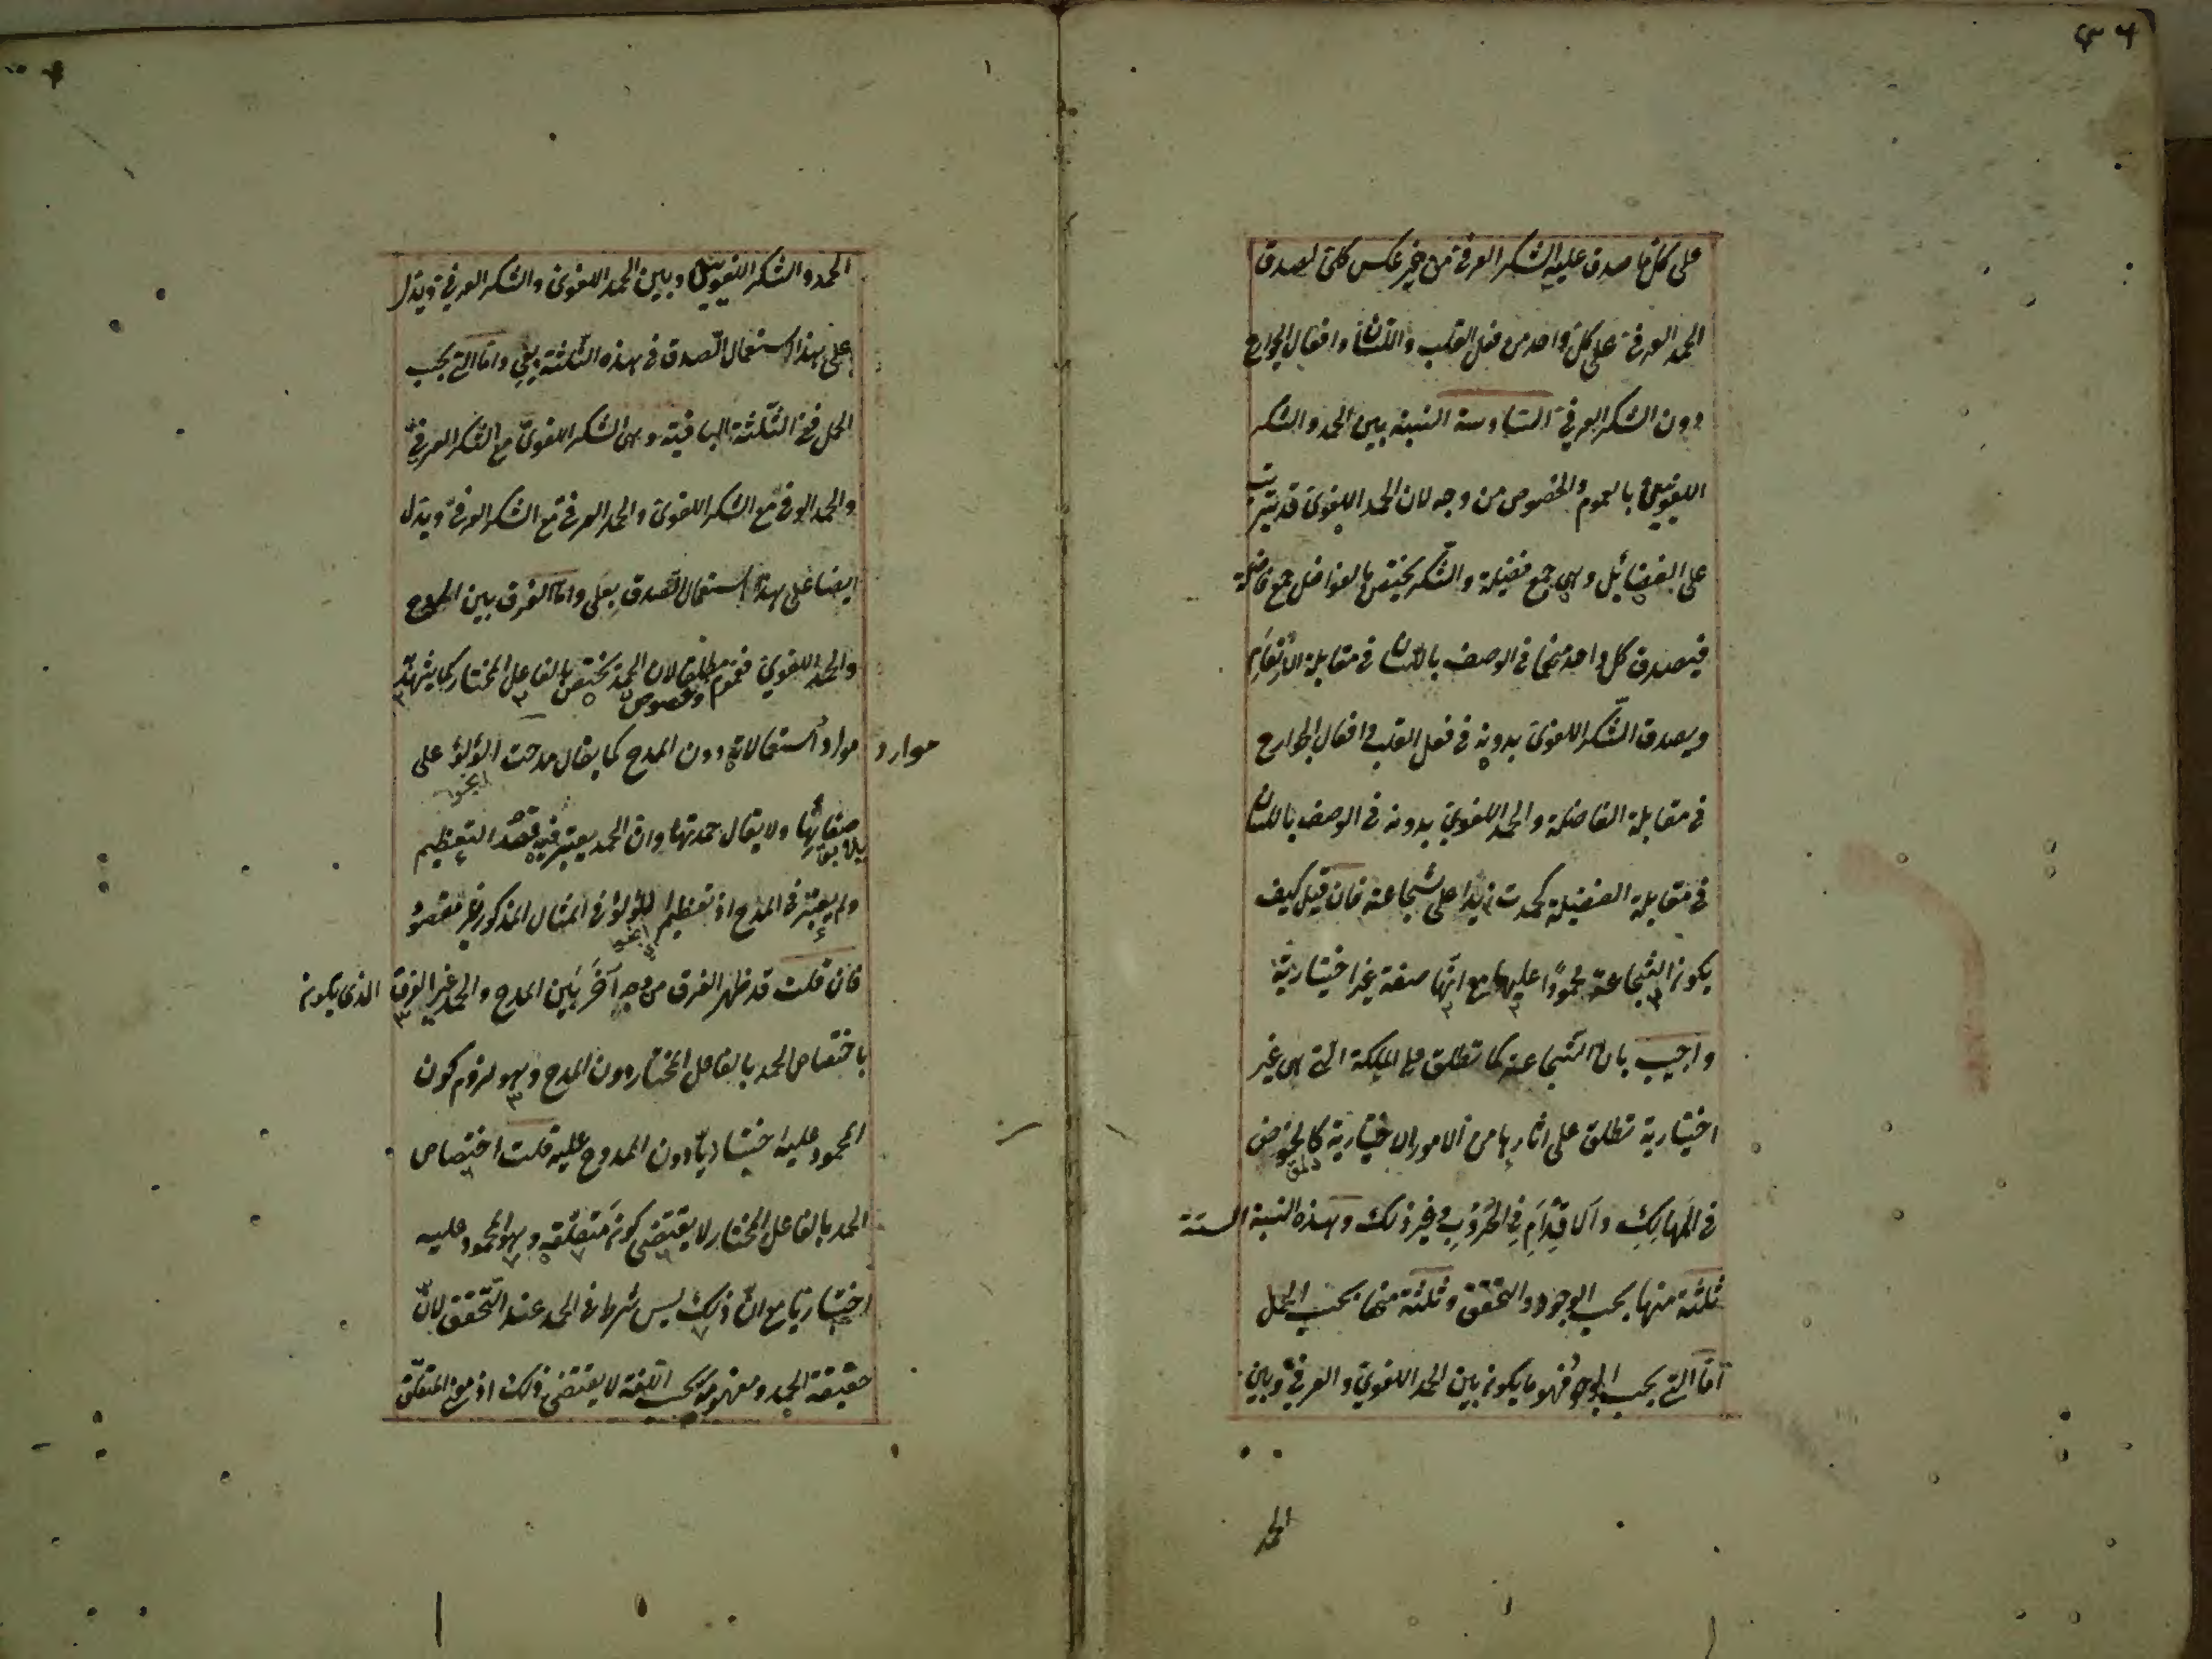 على كل ما صدق عليه الشكر العرفي من غير عكس كلي لصدق
الحمد العرفي على كل واحد من فعل القلب واللسان وافعال الجوارح
دون الشكر العرفي السادسة النسبة بين الحمد والشكر
اللغويين بالعموم والخصوص من وجه لان الحمد اللغوي قد يترتب
على الفضائل وهي جمع فضيلة والشكر يختص بالفواضل جمع فاضلة
فيصدق كل واحد منهما في الوصف باللسان في مقابلة الانعام
ويصدق الشكر اللغوي بدونه في فعل القلب وافعال الجوارح
في مقابلة الفاضلة والحمد اللغوي بدونه في الوصف باللسان
في مقابلة الفضيلة كحمدت زيدا على شجاعته فان قيل كيف
يكون الشجاعة محمودًا عليها مع انّها صفة غير اختيارية
واجيب بان الشجاعة كما تطلق على الملكة التي هي غير
اختيارية تطلق على اثارها من الامور الاختيارية كالخوض
في المَهالِكِ والاقِدَامِ في الحُرُوبِ وغير ذلك وهذه النسبة الستة
ثلثة منها بحسب الوجود والتحقق وثلثة منها بحسب الحمل
امّا التي بحسب الوجود فهو ما يكون بين الحمد اللغوي والعرفي وبين
الحمد
الحمد والشكر اللغويين وبين الحمد اللغوي والشكر العرفي ويدل
على هذا استعمال الصدق في هذه الثلثة بفي واما التي بحسب
الحمل فهي الثلثة الباقية وهي الشكر اللغوي مع الشكر العرفي
والحمد العرفي مع الشكر اللغوي والحمد العرفي مع الشكر العرفي ويدل
ايضا على هذا استعمال الصدق بعلى واما الفرق بين المدح
والحمد اللغوي فعموم وخصوص مطلق لان الحمد يختص بالفاعل المختار كما يشهد به
موارد
موارد استعمالاته دون المدح كما يقال مدحت اللؤلؤ على
صفائها ولا يقال حمدتها وان الحمد يعتبر فيه قصد التعظيم
ولم يعتبر في المدح اذ تعظيم اللؤلؤ في المثال المذكور غير مقصود
فان قلت قد ظهر الفرق من وجه آخر بين المدح والحمد غير الفرق الذي يكون
باختصاص الحمد بالفاعل المختار دون المدح وهو لزوم كون
المحمود عليه اختياريّا دون الممدوح عليه قلت اختصاص
الحمد بالفاعل المختار لا يقتضي كون متعلقه وهو المحمود عليه
اختياريا مع انّ ذلك ليس شرطا في الحمد عند التحقق لانّ
حقيقة الحمد ومفهومه بحسب اللغة لا يقتضي ذلك اذ مع المتعلق